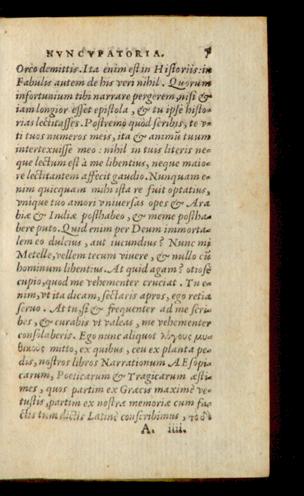 NVNCVPATORIA. 7
Orco demittis. Ita enim est in Historiis: in
Fabulis autem de his veri nihil. Quorum
infortunium tibi narrare pergerem, nisi &
iam longior esset epistola, & tu ipse histo-
rias lectitasses. Postremo quòd scribis, te v-
ti tuos numeros meis, ita & animũ tuum
intertexuisse meo: nihil in tuis literis ne-
que lectum est à me libentius, neque maio-
re lectitantem affecit gaudio. Nunquam e-
nim quicquam mihi ista re fuit optatius,
vnique tuo amori vniuersas opes & Ara
biæ & Indiæ posthabeo, & meme postha-
bere puto. Quid enim per Deum immorta-
lem eo dulcius, aut iucundius? Nunc mi
Metelle, vellem tecum viuere, & nullo cũ
hominum libentius. At quid agam? otiosè
cupio, quod me vehementer cruciat. Tu e-
nim, vt ita dicam, sectaris apros, ego retia
seruo. At tu, si & frequenter ad me scri-
bes, & curabis vt valeas, me vehementer
consolaberis. Ego nunc aliquot λόγους μυ-
θικοὺς mitto, ex quibus, ceu ex planta pe-
dis, nostros libros Narrationum AEsopi-
carum, Poeticarum & Tragicarum æsti-
mes, quos partim ex Græcis maximè ve-
tustis, partim ex nostræ memoriæ cum fa-
ctis tum dictis Latinè conscribimus,
A. iiii.